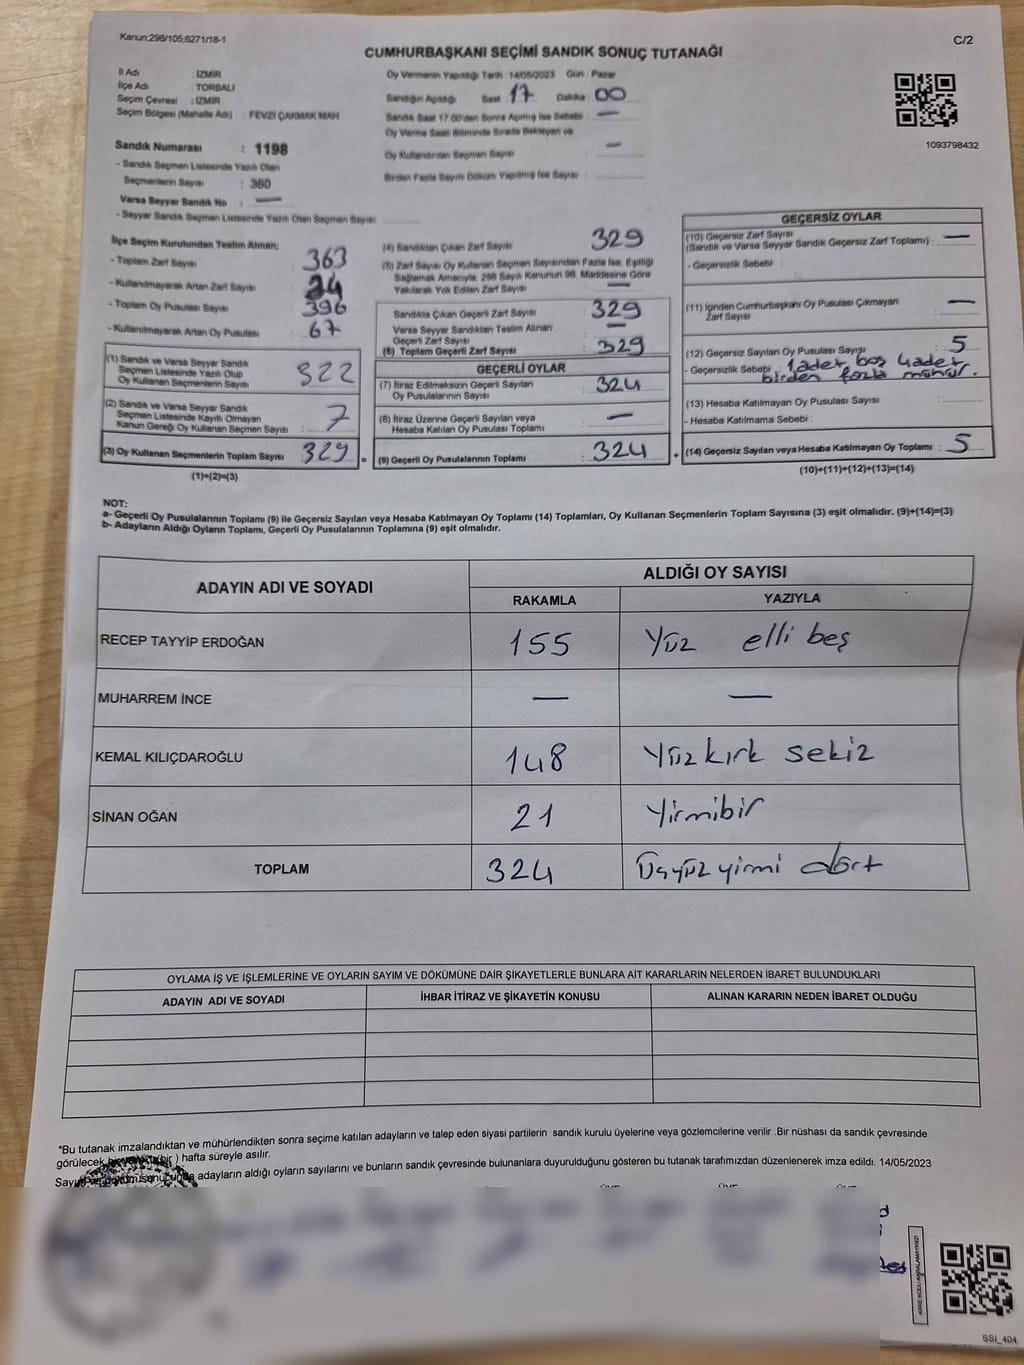 Kanun:298/105;6271/18-1
C/2
CUMHURBAŞKANI SEÇİMİ SANDIK SONUÇ TUTANAĞI
İl Adı : İZMİR
İlçe Adı : TORBALI
Seçim Çevresi : İZMİR
Seçim Bölgesi (Mahalle Adı) : FEVZİ ÇAKMAK MAH
Sandık Numarası : 1198
- Sandık Seçmen Listesinde Yazılı Olan
Seçmenlerin Sayısı : 360
Varsa Seyyar Sandık No : —
- Seyyar Sandık Seçmen Listesinde Yazılı Olan Seçmen Sayısı
Oy Vermenin Yapıldığı Tarih 14/05/2023 Gün : Pazar
Sandığın Açıldığı Saat 17 Dakika 00
Sandık Saat 17.00'den Sonra Açılmış İse Sebebi : —
Oy Verme Saati Bitiminde Sırada Bekleyen ve
Oy Kullandırılan Seçmen Sayısı : —
Birden Fazla Sayım Döküm Yapılmış İse Sayısı :
1093798432
İlçe Seçim Kurulundan Teslim Alınan;
- Toplam Zarf Sayısı : 363
- Kullanılmayarak Artan Zarf Sayısı : 34
- Toplam Oy Pusulası Sayısı : 396
- Kullanılmayarak Artan Oy Pusulası : 67
(1) Sandık ve Varsa Seyyar Sandık
Seçmen Listesinde Yazılı Olup
Oy Kullanan Seçmenlerin Sayısı : 322
(2) Sandık ve Varsa Seyyar Sandık
Seçmen Listesinde Kayıtlı Olmayan
Kanun Gereği Oy Kullanan Seçmen Sayısı : 7
(3) Oy Kullanan Seçmenlerin Toplam Sayısı : 329
(1)+(2)=(3)
(4) Sandıktan Çıkan Zarf Sayısı : 329
(5) Zarf Sayısı Oy Kullanan Seçmen Sayısından Fazla İse, Eşitliği
Sağlamak Amacıyla; 298 Sayılı Kanunun 98. Maddesine Göre
Yakılarak Yok Edilen Zarf Sayısı : —
Sandıkta Çıkan Geçerli Zarf Sayısı : 329
Varsa Seyyar Sandıktan Teslim Alınan
Geçerli Zarf Sayısı : —
(6) Toplam Geçerli Zarf Sayısı : 329
GEÇERLİ OYLAR
(7) İtiraz Edilmeksizin Geçerli Sayılan
Oy Pusulalarının Sayısı : 324
(8) İtiraz Üzerine Geçerli Sayılan veya
Hesaba Katılan Oy Pusulası Toplamı : —
= (9) Geçerli Oy Pusulalarının Toplamı : 324
GEÇERSİZ OYLAR
(10) Geçersiz Zarf Sayısı : —
(Sandık ve Varsa Seyyar Sandık Geçersiz Zarf Toplamı) :
- Geçersizlik Sebebi :
(11) İçinden Cumhurbaşkanı Oy Pusulası Çıkmayan
Zarf Sayısı : —
(12) Geçersiz Sayılan Oy Pusulası Sayısı : 5
- Geçersizlik Sebebi 1 adet boş 4 adet
birden fazla mühür.
(13) Hesaba Katılmayan Oy Pusulası Sayısı :
- Hesaba Katılmama Sebebi :
+ (14) Geçersiz Sayılan veya Hesaba Katılmayan Oy Toplamı : 5
(10)+(11)+(12)+(13)=(14)
NOT:
a- Geçerli Oy Pusulalarının Toplamı (9) ile Geçersiz Sayılan veya Hesaba Katılmayan Oy Toplamı (14) Toplamları, Oy Kullanan Seçmenlerin Toplam Sayısına (3) eşit olmalıdır. (9)+(14)=(3)
b- Adayların Aldığı Oyların Toplamı, Geçerli Oy Pusulalarının Toplamına (9) eşit olmalıdır.
ADAYIN ADI VE SOYADI
ALDIĞI OY SAYISI
RAKAMLA YAZIYLA
RECEP TAYYİP ERDOĞAN 155 Yüz elli beş
MUHARREM İNCE — —
KEMAL KILIÇDAROĞLU 148 Yüz kırk sekiz
SİNAN OĞAN 21 Yirmibir
TOPLAM 324 Üçyüz yirmi dört
OYLAMA İŞ VE İŞLEMLERİNE VE OYLARIN SAYIM VE DÖKÜMÜNE DAİR ŞİKAYETLERLE BUNLARA AİT KARARLARIN NELERDEN İBARET BULUNDUKLARI
ADAYIN ADI VE SOYADI İHBAR İTİRAZ VE ŞİKAYETİN KONUSU ALINAN KARARIN NEDEN İBARET OLDUĞU
*Bu tutanak imzalandıktan ve mühürlendikten sonra seçime katılan adayların ve talep eden siyasi partilerin sandık kurulu üyelerine veya gözlemcilerine verilir .Bir nüshası da sandık çevresinde
görülecek bir (bir ) hafta süreyle asılır.
adayların aldığı oyların sayılarını ve bunların sandık çevresinde bulunanlara duyurulduğunu gösteren bu tutanak tarafımızdan düzenlenerek imza edildi. 14/05/2023
SSİ_404